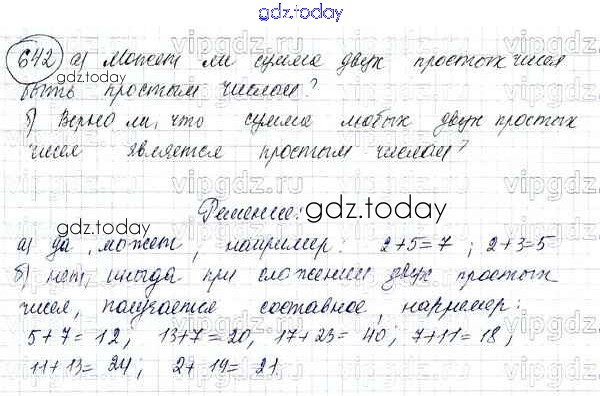 gdz.today
642 а) Может ли сумма двух простых чисел
gdz.today
быть простым числом?
б) Верно ли, что сумма любых двух простых
чисел является простым числом?
Решение:
gdz.today
а) да, может, например: 2+5=7; 2+3=5
б) нет, иногда при сложении двух простых
чисел, получается составное, например:
5+7=12, 13+7=20, 17+23=40; 7+11=18,
11+13=24; 2+19=21.
gdz.today